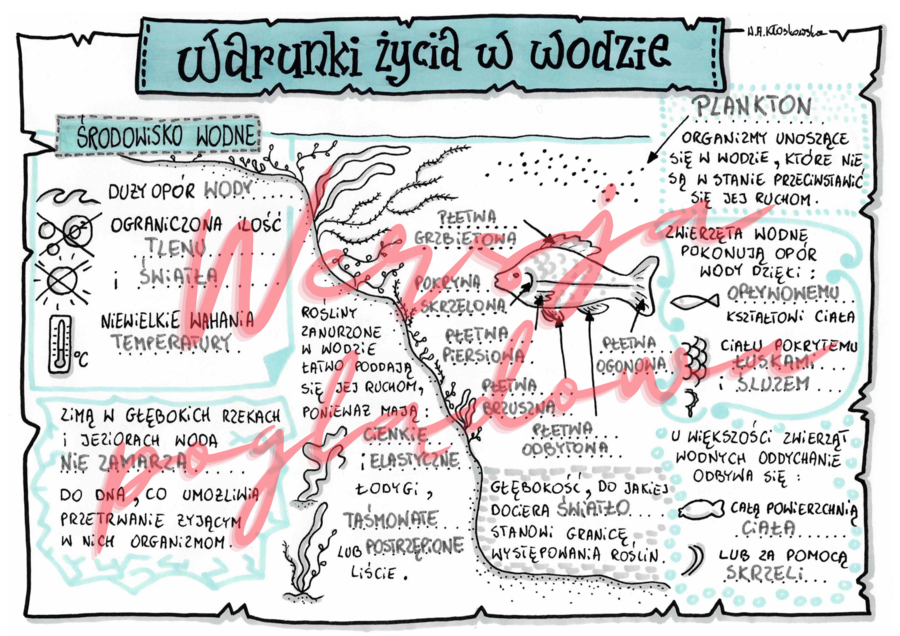 Warunki życia w wodzie
N.A.Kłoskowska
ŚRODOWISKO WODNE
DUŻY OPÓR WODY
OGRANICZONA ILOŚĆ
TLENU
i ŚWIATŁA
NIEWIELKIE WAHANIA
TEMPERATURY
°C
ZIMĄ W GŁĘBOKICH RZEKACH
i JEZIORACH WODA
NIE ZAMARZA
DO DNA, CO UMOŻLIWIA
PRZETRWANIE ŻYJĄCYM
W NICH ORGANIZMOM.
ROŚLINY
ZANURZONE
W WODZIE
ŁATWO PODDAJĄ
SIĘ JEJ RUCHOM,
PONIEWAŻ MAJĄ:
CIENKIE
i ELASTYCZNE
ŁODYGI,
TAŚMOWATE
LUB POSTRZĘPIONE
LIŚCIE.
PŁETWA
GRZBIETOWA
POKRYWA
SKRZELOWA
PŁETWA
PIERSIOWA
PŁETWA
BRZUSZNA
PŁETWA
ODBYTOWA
PŁETWA
OGONOWA
GŁĘBOKOŚĆ, DO JAKIEJ
DOCIERA ŚWIATŁO
STANOWI GRANICĘ
WYSTĘPOWANIA ROŚLIN.
PLANKTON
ORGANIZMY UNOSZĄCE
SIĘ W WODZIE, KTÓRE NIE
SĄ W STANIE PRZECIWSTAWIĆ
SIĘ JEJ RUCHOM.
ZWIERZĘTA WODNE
POKONUJĄ OPÓR
WODY DZIĘKI:
OPŁYWOWEMU
KSZTAŁTOWI CIAŁA
CIAŁU POKRYTEMU
ŁUSKAMI
i ŚLUZEM
U WIĘKSZOŚCI ZWIERZĄT
WODNYCH ODDYCHANIE
ODBYWA SIĘ:
CAŁĄ POWIERZCHNIĄ
CIAŁA
LUB ZA POMOCĄ
SKRZELI
Wersja
poglądowa